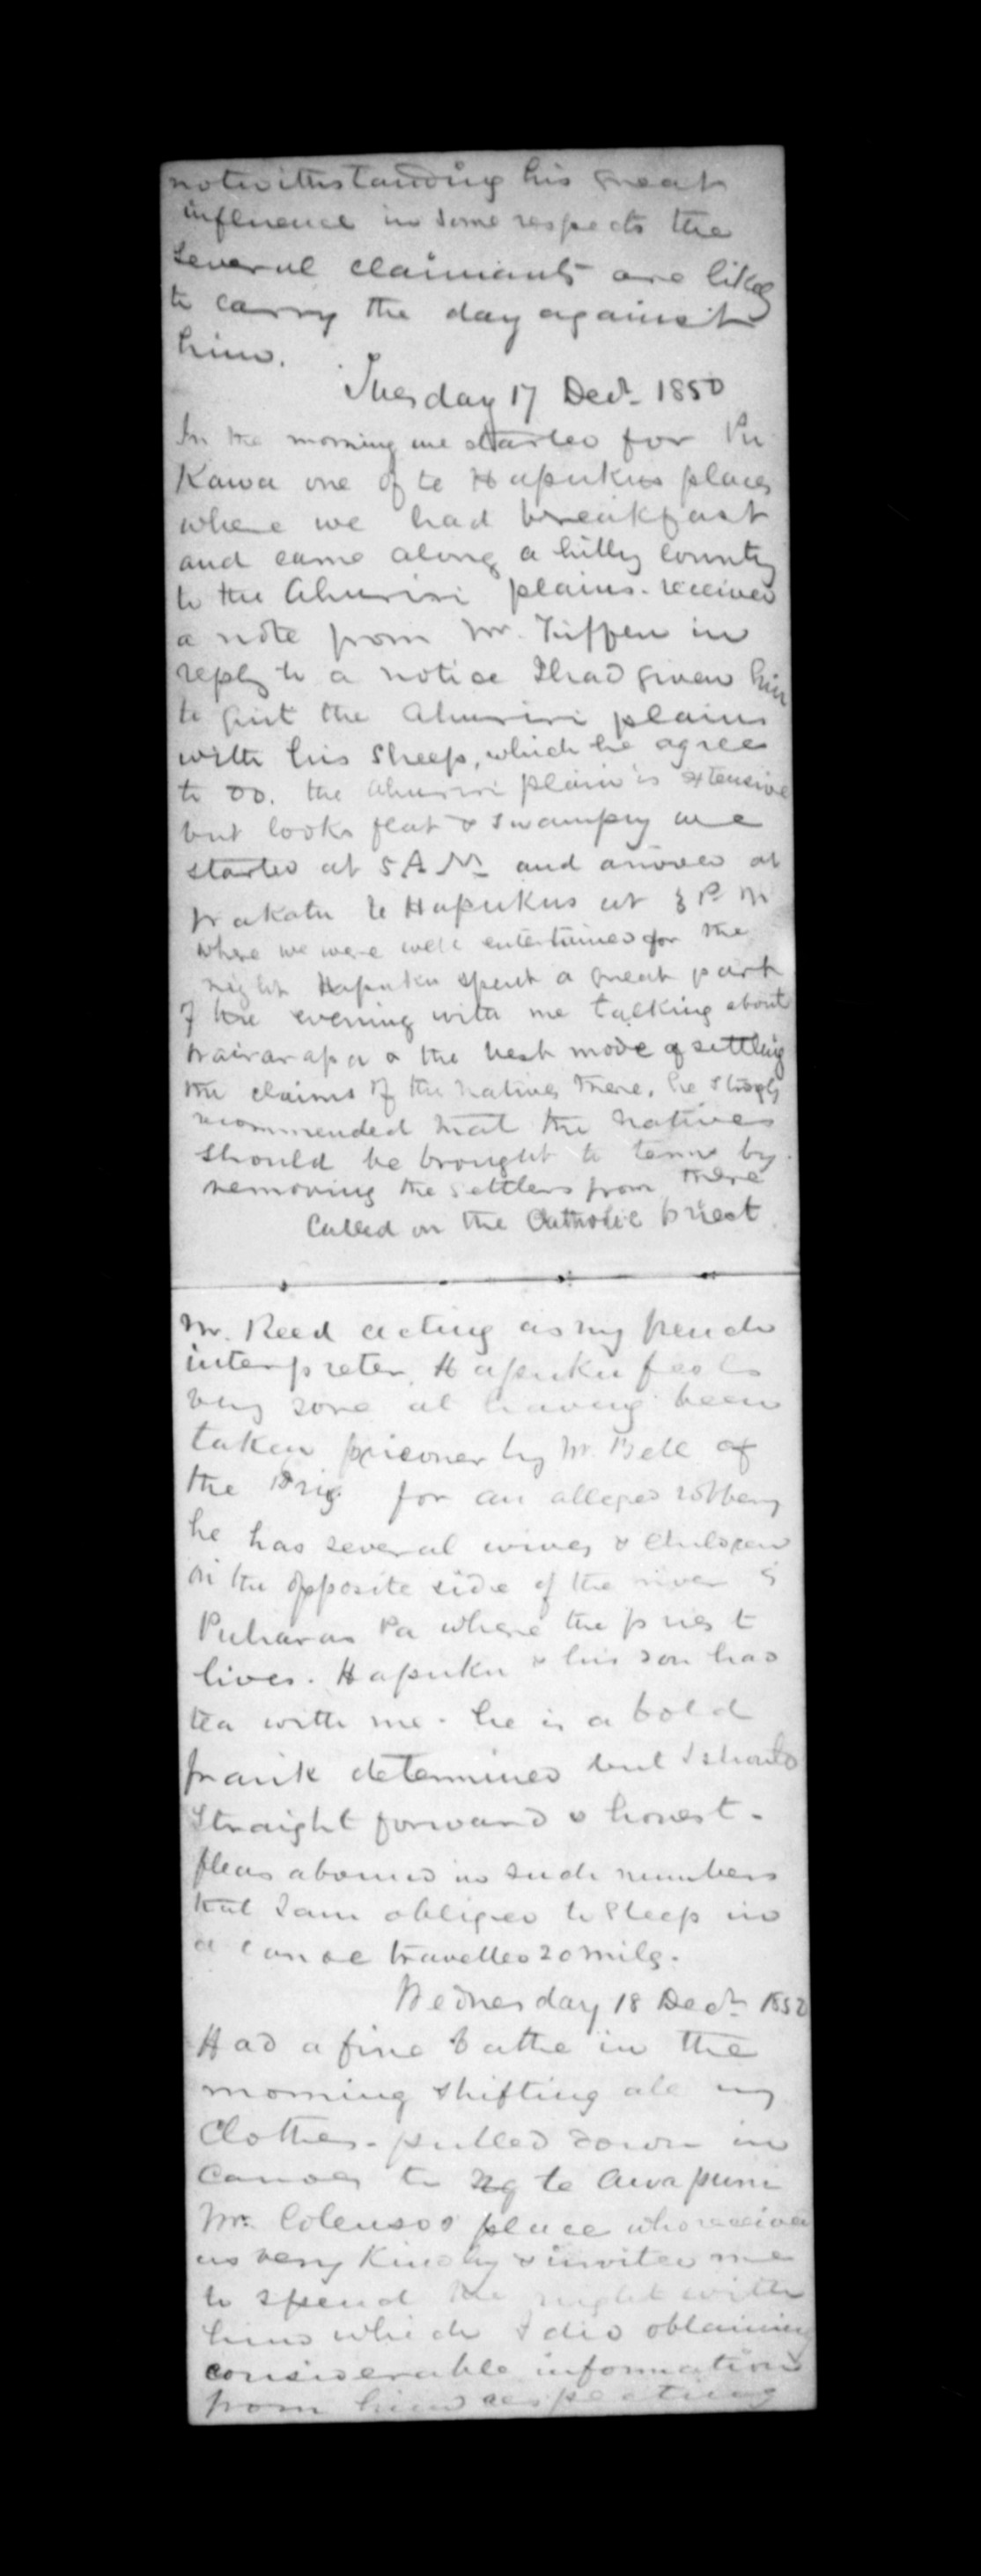 notwithstanding his great
influence in some respects the
several claimants are likely
to carry the day against
him.
Tuesday 17 Decr. 1850
In the morning we started for Pu
Kawa one of te Hapukus places
where we had breakfast
and came along a hilly country
to the Ahuriri plains. received
a note from Mr. Tiffen in
reply to a notice I had given him
to quit the Ahuriri plains
with his sheep, which he agrees
to do. the Ahuriri plain is extensive
but looks flat & swampy we
started at 5 A M and arrived at
Wakatu te Hapukus at 3 P. M
where we were well entertained for the
night Hapuku spent a great part
of the evening with me talking about
Wairarapa & the best mode of settling
the claims of the natives there. he strongly
recommended that the natives
should be brought to terms by
removing the settlers from there
Called on the Catholic priest
Mr. Reed acting as my french
interpreter. Hapuku feels
very sore at having been
taken prisoner by Mr. Bell of
the Brig for an alleged robbery
he has several wives & children
on the opposite side of the river is
Puharas Pa where the priest
lives. Hapuku & his son had
tea with me. he is a bold
frank determined but I should
straight forward & honest.
fleas abound in such numbers
that I am obliged to sleep in
a canoe travelled 20 miles.
Wednesday 18 Decr. 1850
Had a fine bathe in the
morning shifting all my
Clothes. pulled down in
canoes to Ng te Awapuni
Mr. Colensos place who received
us very kindly & invited me
to spend the night with
him which I did obtaining
considerable information
from him respecting